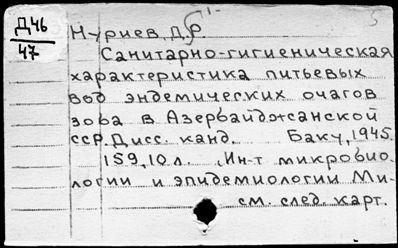 Д46
47
Нуриев, Д.
Санитарно-гигиеническая
характеристика питьевых
вод эндемических очагов
зоба в Азербайджанской
ССР. Дисс. канд. Баку, 1945.
159, 10 л. Ин-т микробио
логии и эпидемиологии Ми-
см. след. карт.